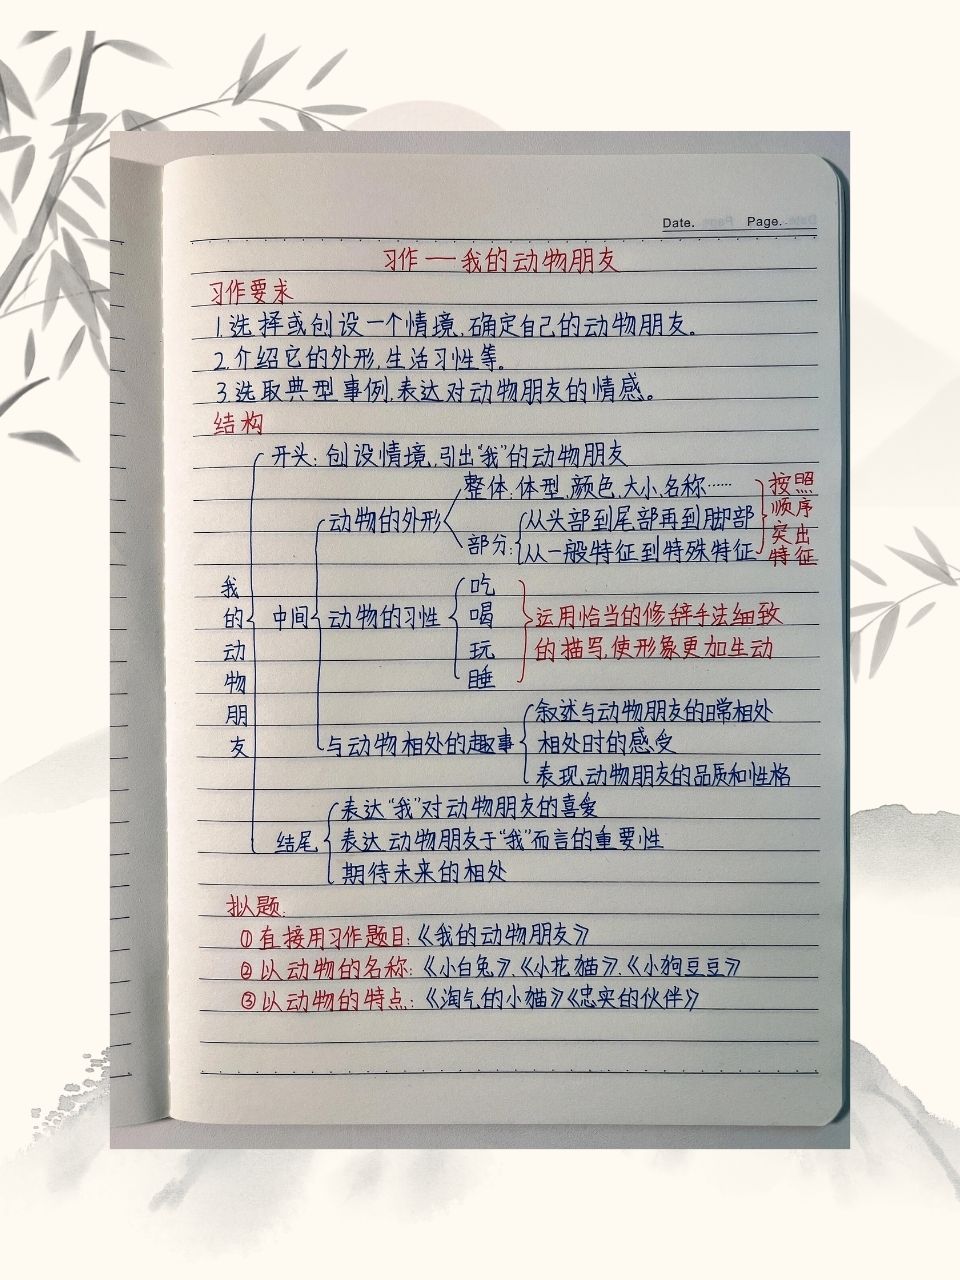 Date. Page.
习作——我的动物朋友
习作要求
1.选择或创设一个情境,确定自己的动物朋友。
2.介绍它的外形,生活习性等。
3.选取典型事例,表达对动物朋友的情感。
结构
我的动物朋友
开头:创设情境,引出“我”的动物朋友
中间
动物的外形
整体:体型,颜色,大小,名称……
部分:
从头部到尾部再到脚部
从一般特征到特殊特征
按照
顺序
突出
特征
动物的习性
吃
喝
玩
睡
运用恰当的修辞手法细致
的描写,使形象更加生动
与动物相处的趣事
叙述与动物朋友的日常相处
相处时的感受
表现动物朋友的品质和性格
结尾
表达“我”对动物朋友的喜爱
表达动物朋友于“我”而言的重要性
期待未来的相处
拟题:
①直接用习作题目:《我的动物朋友》
②以动物的名称:《小白兔》、《小花猫》、《小狗豆豆》
③以动物的特点:《淘气的小猫》《忠实的伙伴》